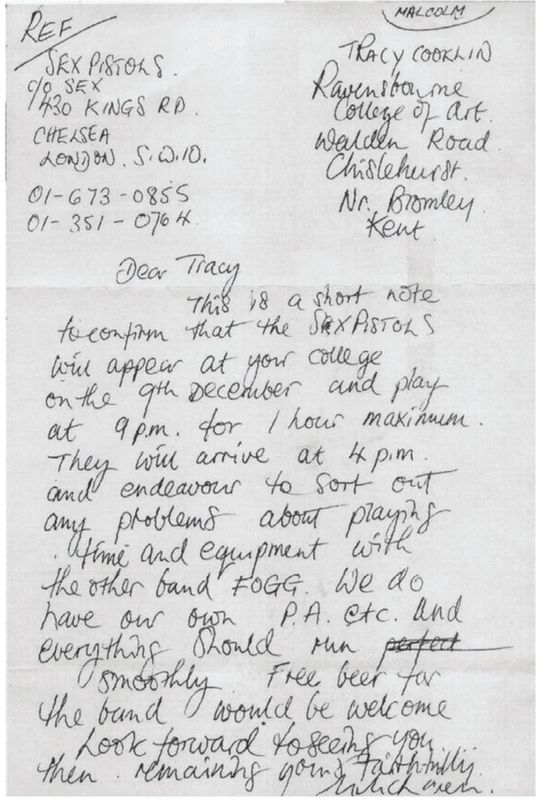 REF
MALCOLM
SEX PISTOLS.
c/o SEX
430 KINGS RD.
CHELSEA
LONDON. S.W.10.
01-673-0855
01-351-0764.
TRACY COOKLIN
Ravensbourne
College of Art.
Walden Road.
Chislehurst.
Nr. Bromley.
Kent.
Dear Tracy
This is a short note
to confirm that the SEX PISTOLS
will appear at your college
on the 9th December and play
at 9 p.m. for 1 hour maximum.
They will arrive at 4 p.m.
and endeavour to sort out
any problems about playing
time and equipment with
the other band FOGG. We do
have our own P.A. etc. and
everything should run perfect
smoothly. Free beer for
the band would be welcome
Look forward to seeing you
then. remaining yours faithfully.